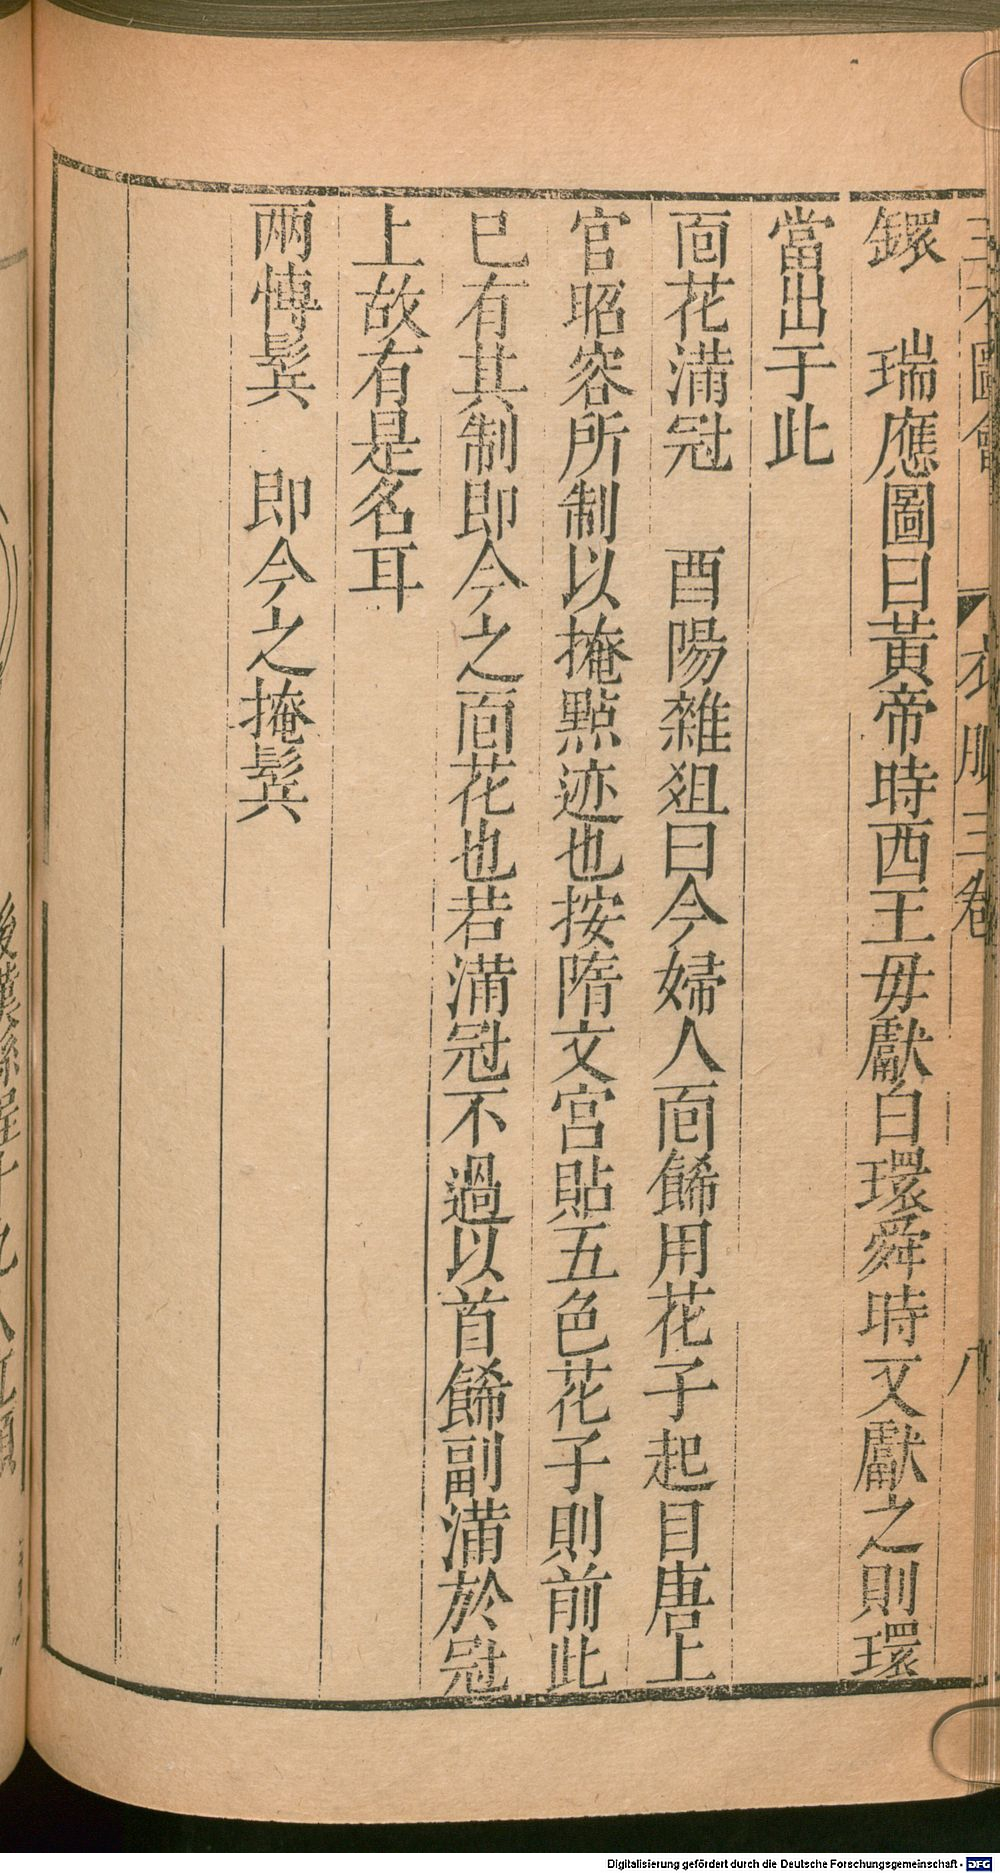 三才圖會 衣服三卷 八
鐶 瑞應圖曰黃帝時西王母獻白環舜時又獻之則環
當出于此
面花滿冠 酉陽雜俎曰今婦人面餙用花子起自唐上
官昭容所制以掩點迹也按隋文宮貼五色花子則前此
已有其制即今之面花也若滿冠不過以首餙副滿於冠
上故有是名耳
兩博鬂 即今之掩鬂
Digitalisierung gefördert durch die Deutsche Forschungsgemeinschaft - DFG